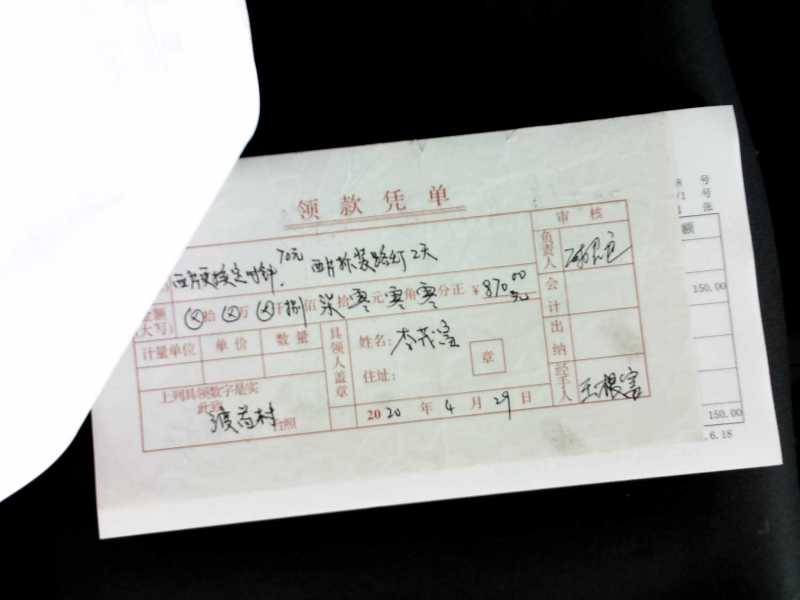 领款凭单
审核
西片更换定时钟 70元 西片拆装路灯2天
负责人
金额(大写) ⊗拾⊗万⊗仟捌佰柒拾零元零角零分正 ¥870.00元
会计
计量单位 单价 数量
具领人盖章
姓名:
章
住址:
出纳
上列具领数字是实
此致
渡 村 台照
2020年4月29日
经手人 王根富
号
号
张
额
150.00
150.00
6.18